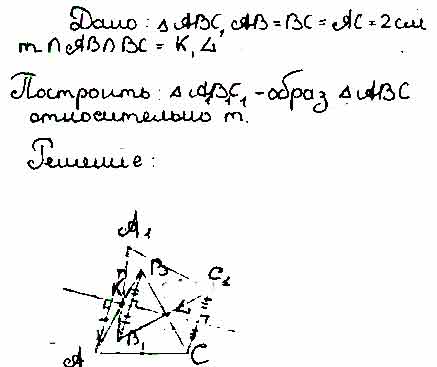 Дано: △ABC, AB = BC = AC = 2 см
m ∩ AB ∩ BC = K, L
Построить: △ A₁B₁C₁ - образ △ ABC
относительно m.
Решение:
A₁
B C₁
K L
B₁
A C